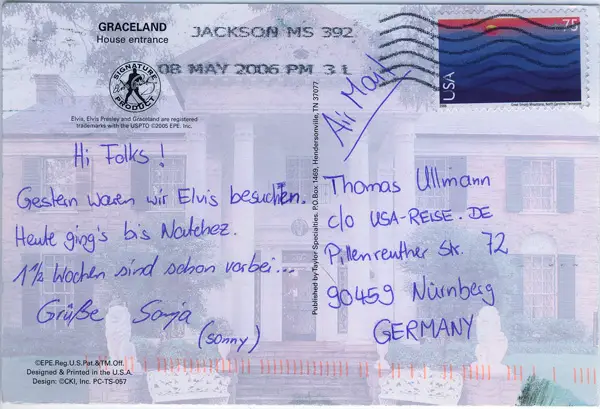 GRACELAND
House entrance
JACKSON MS 392
08 MAY 2006 PM 3 L
75
USA
SIGNATURE
PRODUCT
Elvis, Elvis Presley and Graceland are registered
trademarks with the USPTO ©2005 EPE, Inc.
Air Mail
Hi Folks!
Gestern waren wir Elvis besuchen.
Heute ging's bis Natchez.
1 1/2 Wochen sind schon vorbei...
Grüße Sonja
(sonny)
Published by Taylor Specialties, P.O. Box 1469, Hendersonville, TN 37077.
Thomas Ullmann
c/o USA-REISE.DE
Pillenreuther Str. 72
90459 Nürnberg
GERMANY
©EPE.Reg.U.S.Pat.&TM.Off.
Designed & Printed in the U.S.A.
Design: ©CKI, Inc. PC-TS-057